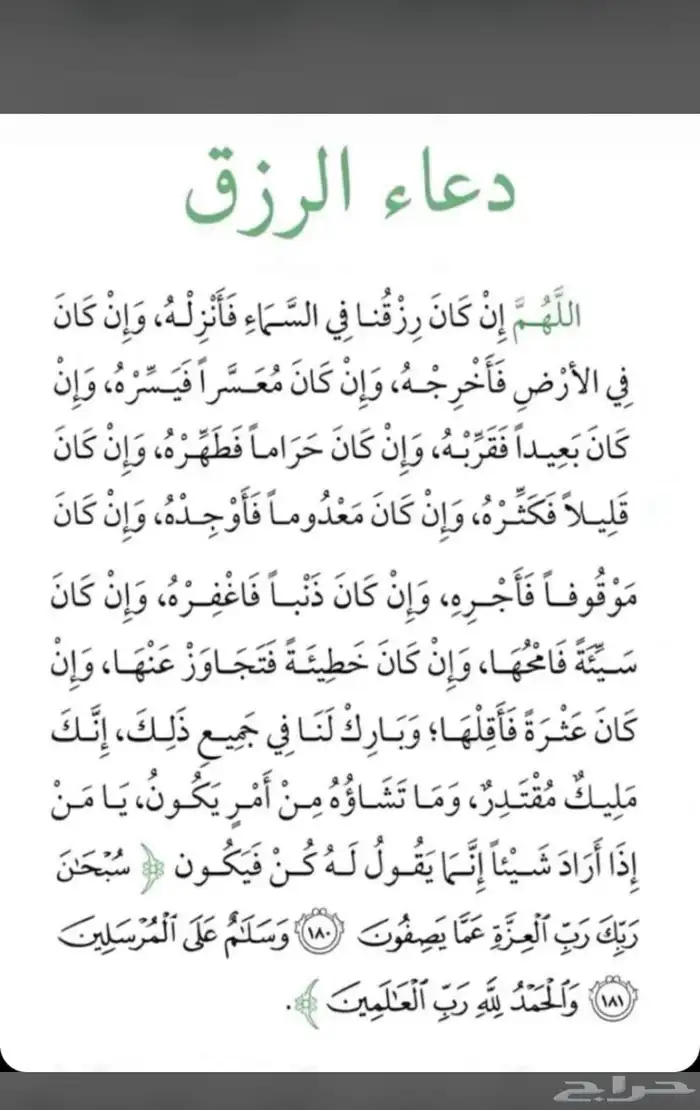 دعاء الرزق
اللَّهُمَّ إِنْ كَانَ رِزْقُنا فِي السَّمَاءِ فَأَنْزِلْهُ، وَإِنْ كَانَ
فِي الأرْضِ فَأَخْرِجْهُ، وَإِنْ كَانَ مُعَسَّراً فَيَسِّرْهُ، وَإِنْ
كَانَ بَعِيداً فَقَرِّبْهُ، وَإِنْ كَانَ حَرَاماً فَطَهِّرْهُ، وَإِنْ كَانَ
قَلِيلاً فَكَثِّرْهُ، وَإِنْ كَانَ مَعْدُوماً فَأَوْجِدْهُ، وَإِنْ كَانَ
مَوْقُوفاً فَأَجْرِهِ، وَإِنْ كَانَ ذَنْباً فَاغْفِرْهُ، وَإِنْ كَانَ
سَيِّئَةً فَامْحُهَا، وَإِنْ كَانَ خَطِيئَةً فَتَجَاوَزْ عَنْهَا، وَإِنْ
كَانَ عَثْرَةً فَأَقِلْهَا؛ وَبَارِكْ لَنَا فِي جَمِيعِ ذَلِكَ، إِنَّكَ
مَلِيكٌ مُقْتَدِرٌ، وَمَا تَشَاؤُهُ مِنْ أَمْرٍ يَكُونُ، يَا مَنْ
إِذَا أَرَادَ شَيْئاً إِنَّمَا يَقُولُ لَهُ كُنْ فَيَكُون ﴿ سُبْحَٰنَ
رَبِّكَ رَبِّ ٱلْعِزَّةِ عَمَّا يَصِفُونَ ١٨٠ وَسَلَٰمٌ عَلَى ٱلْمُرْسَلِينَ
١٨١ وَٱلْحَمْدُ لِلَّهِ رَبِّ ٱلْعَٰلَمِينَ ﴾.
حراج